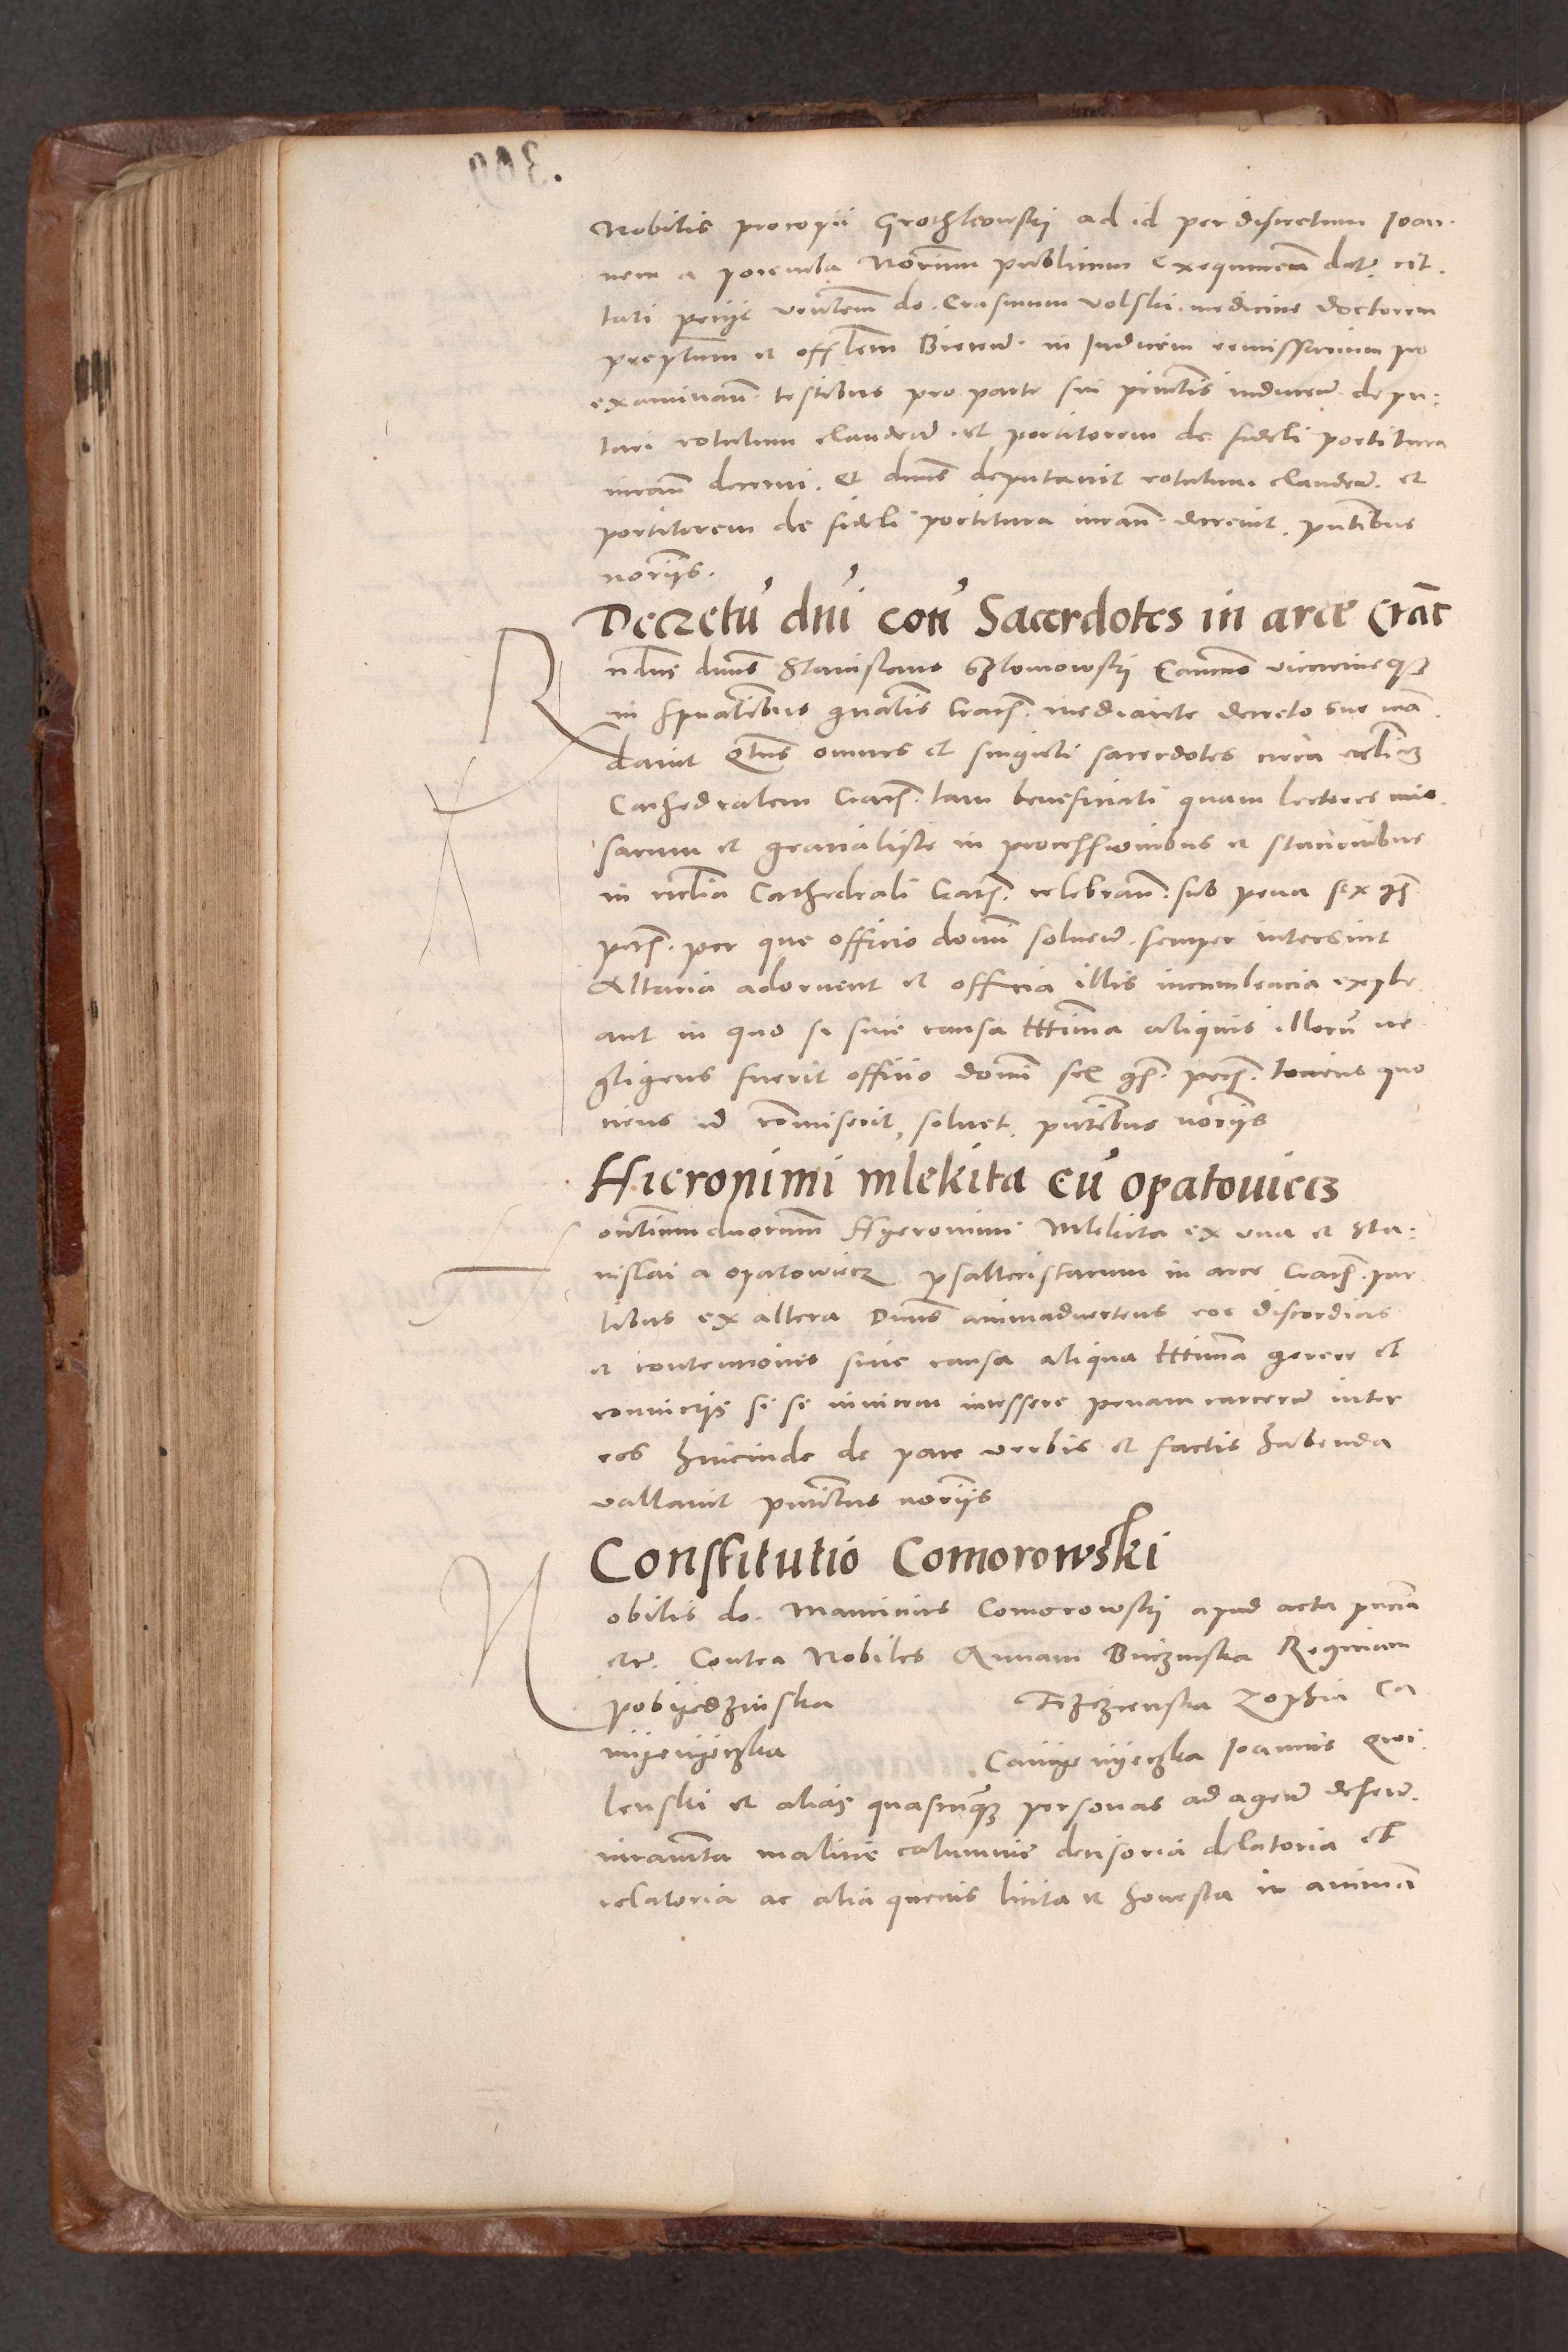 Nobilis procopii Grothkowski ad id per discretum Joan
nem a poremba Norium publicum exequucem dat. cit.
tati petijt venlem do. Erasmum volski medicine doctorem
preptum et offlem Biecem. in Judicem remissarium pro
examinan. testibus pro parte sui principalis inducem. depu:
tari rotulum claudem. et portitorem de fideli portitura
iuran. decerni. Et dnus deputavit rotulum claudem. et
portitorem de fideli portitura iuran. decrevit. pntibus
noriis.
Decretu dni con Sacerdotes in arce Crac
Rndus dnus Stanislaus Slomowski Canonicus vicariusque
in spualibus gnalis Cracs. mediante decreto suo man
davit Qtus omnes et singuli sacerdotes circa eccliam
Cathedralem Cracs. tam beneficiati quam lectores mis.
sarum et gracialiste in processionibus et stacionibus
in ecclia Cathedrali Cracs. celebran. sub pena sex gs.
pecs. per que officio domini solvem. semper intersint
Altaria adornent et officia illis incumbencia exple
ant in quo si sine causa lttima aliquis illoru ne
gligens fuerit officio domini sex gs. pecs. tociens quo
ciens id comiserit, solvet. pntibus noriis
Hieronimi mlekita cu opatoviecz
ontium duorum Hyeronimi Mlekita ex una et Sta:
nislai a opatowiecz psalteristarum in arce Cracs. par
tibus ex altera Dnus animadvertens eos discordias
et contenciones sine causa aliqua lttima gerere et
conviciis se se invicem incessere penam carcerum inter
eos hincinde de pace verbis et factis habenda
vallavit pntibus noriis
Constitutio Comorowski
Nobilis do. Comorowski apud acta pncia
etc. Contra Nobiles Annam Reginam
pobyedzinska Zophia Ca
myenyeczka Camyenyeczka Joannis
lenski et alias quascunque personas ad agem. defem.
iuramta malicie calumnie decisoria delatoria et
relatoria ac alia quevis licita et honesta in animam